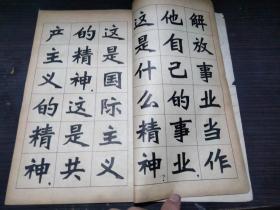 解放事业当作
他自己的事业，
这是什么精神？
这是国际主义
的精神，这是共
产主义的精神，